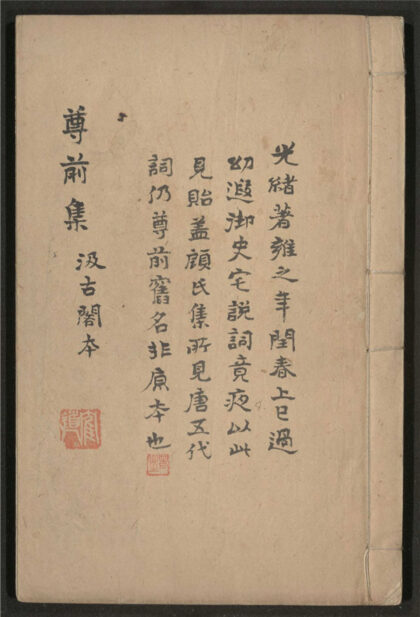 光緒著雍之年閏春上巳過
幼遐御史宅説詞竟夜以此
見貽蓋顧氏集所見唐五代
詞仍尊前舊名非原本也
尊前集
汲古閣本